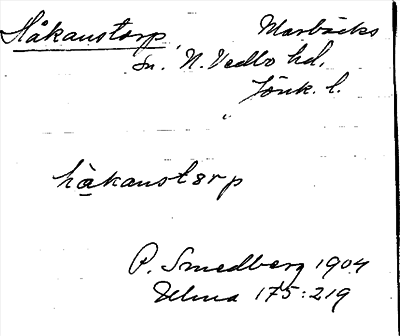 Håkanstorp Marbäcks
sn. N. Vedbo hd.
Jönk. l.
hàkanstorp
P. Smedberg 1904
Ulma 175:219